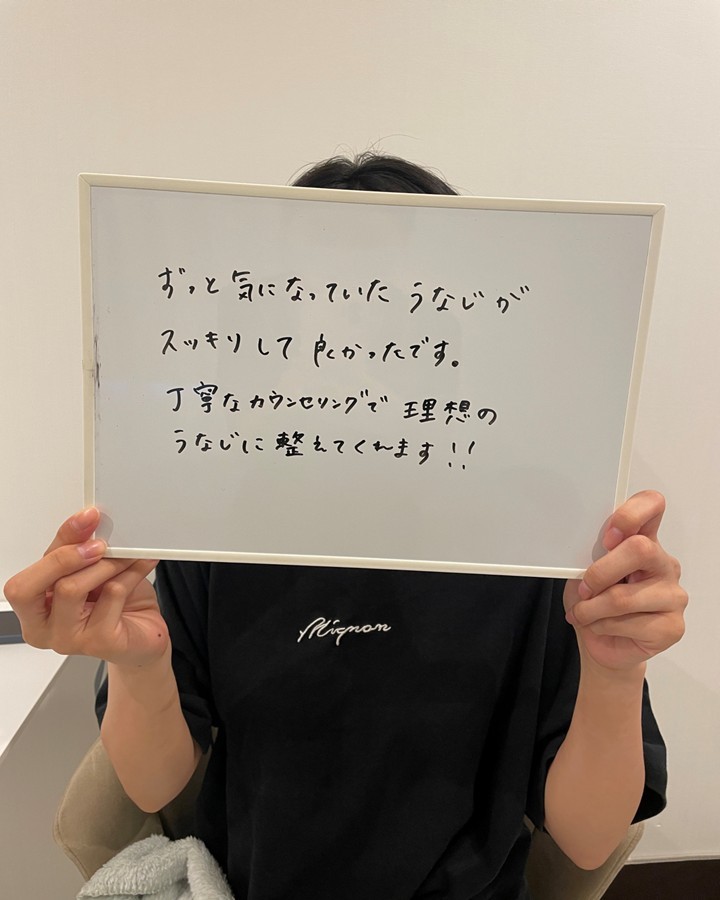 ずっと気になっていた うなじが
スッキリして 良かったです。
丁寧なカウンセリングで 理想の
うなじに整えてくれます!!
Mignon